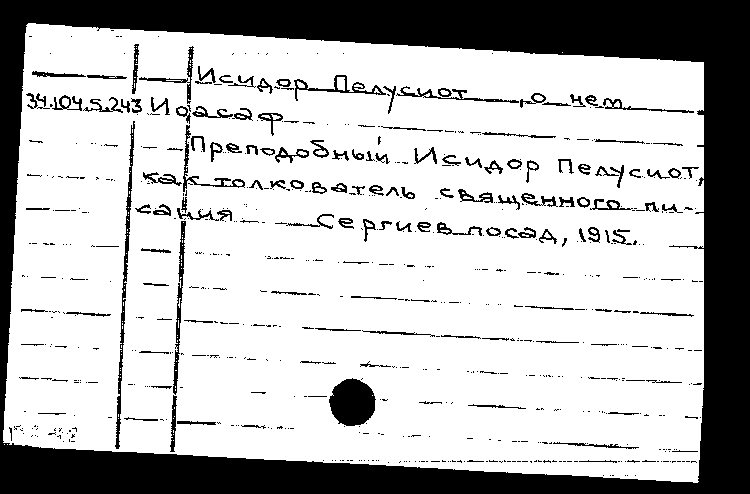 Исидор Пелусиот, о нем.
34.104.5.243 Иоасаф
Преподобный Исидор Пелусиот,
как толкователь священного пи-
сания Сергиев посад, 1915.